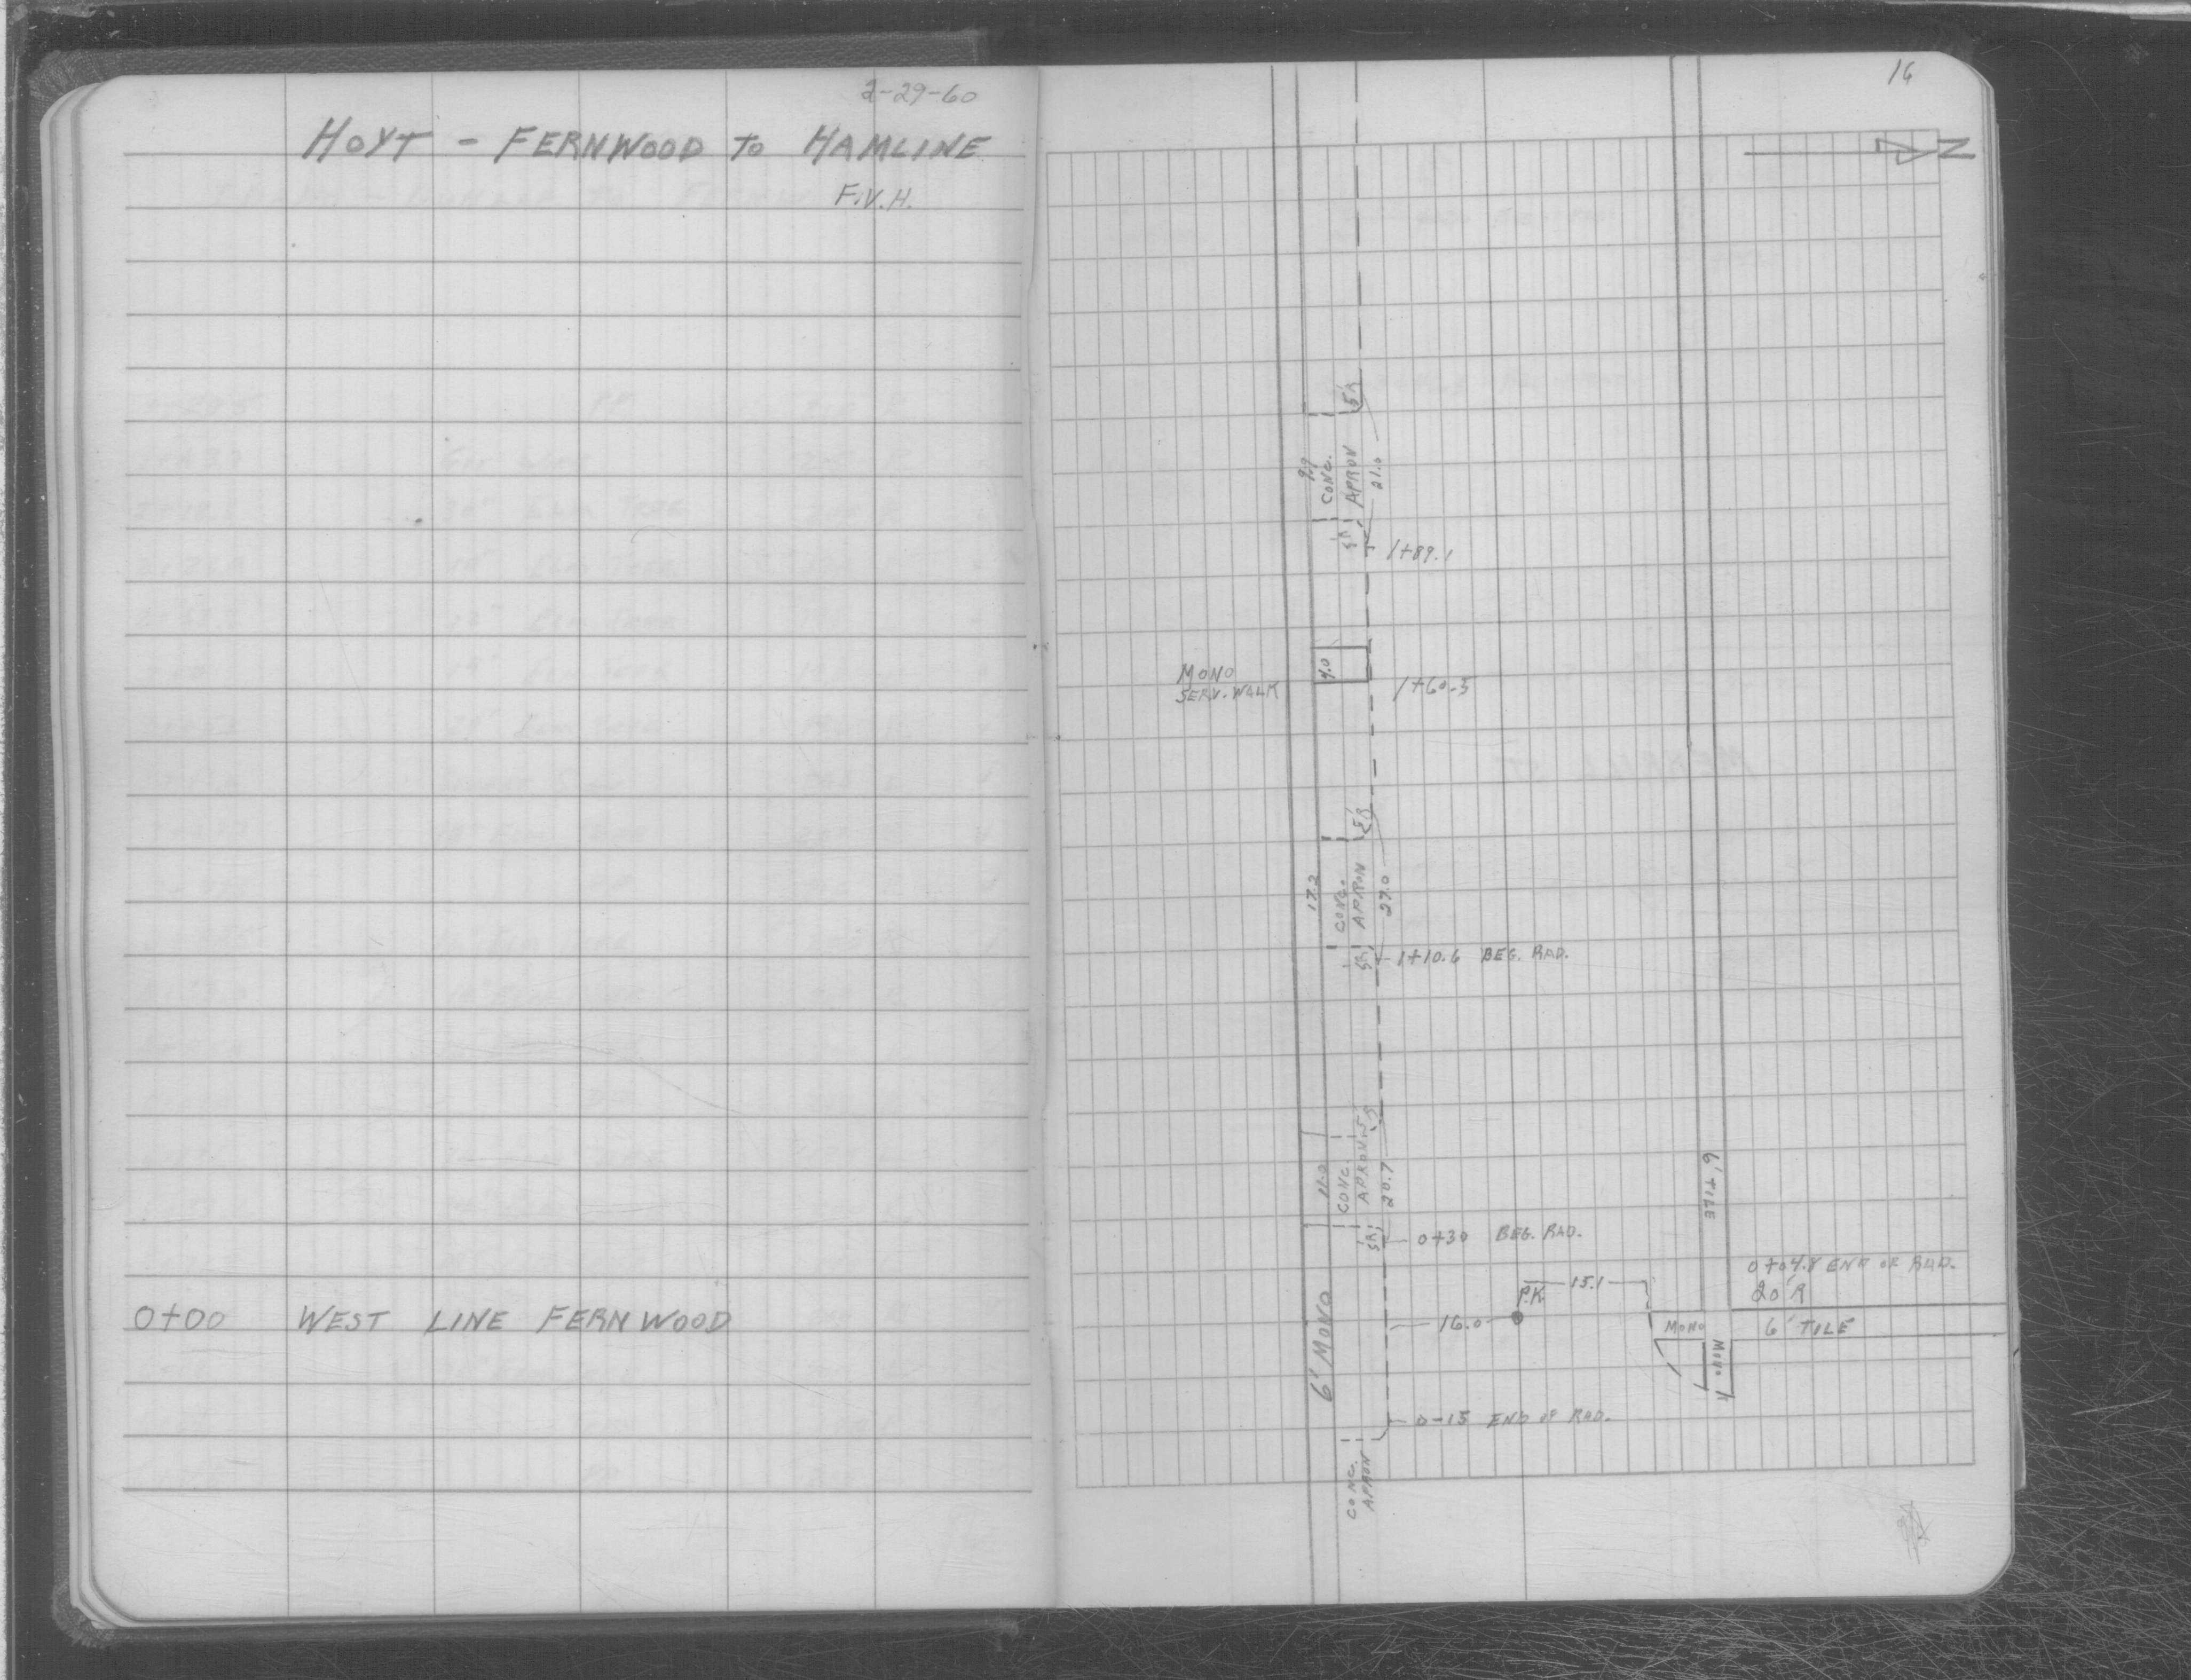 2-29-60
HOYT - FERNWOOD TO HAMLINE
F.V.H.
0+00 WEST LINE FERNWOOD
16
N
5'R
9.9
CONC.
APRON
21.0
5'R
1+89.1
MONO
SERV. WALK
4.0
1+60.5
5'R
17.2
CONC.
APRON
27.0
5'R
1+10.6 BEG. RAD.
5'R
11.0
CONC.
APRON
20.7
6' TILE
5'R
0+30 BEG. RAD.
0+04.8 END OF RAD.
20'R
15.1
P.K.
16.0
MONO
6' TILE
6' MONO
MONO
0-15 END OF RAD.
CONC.
APRON